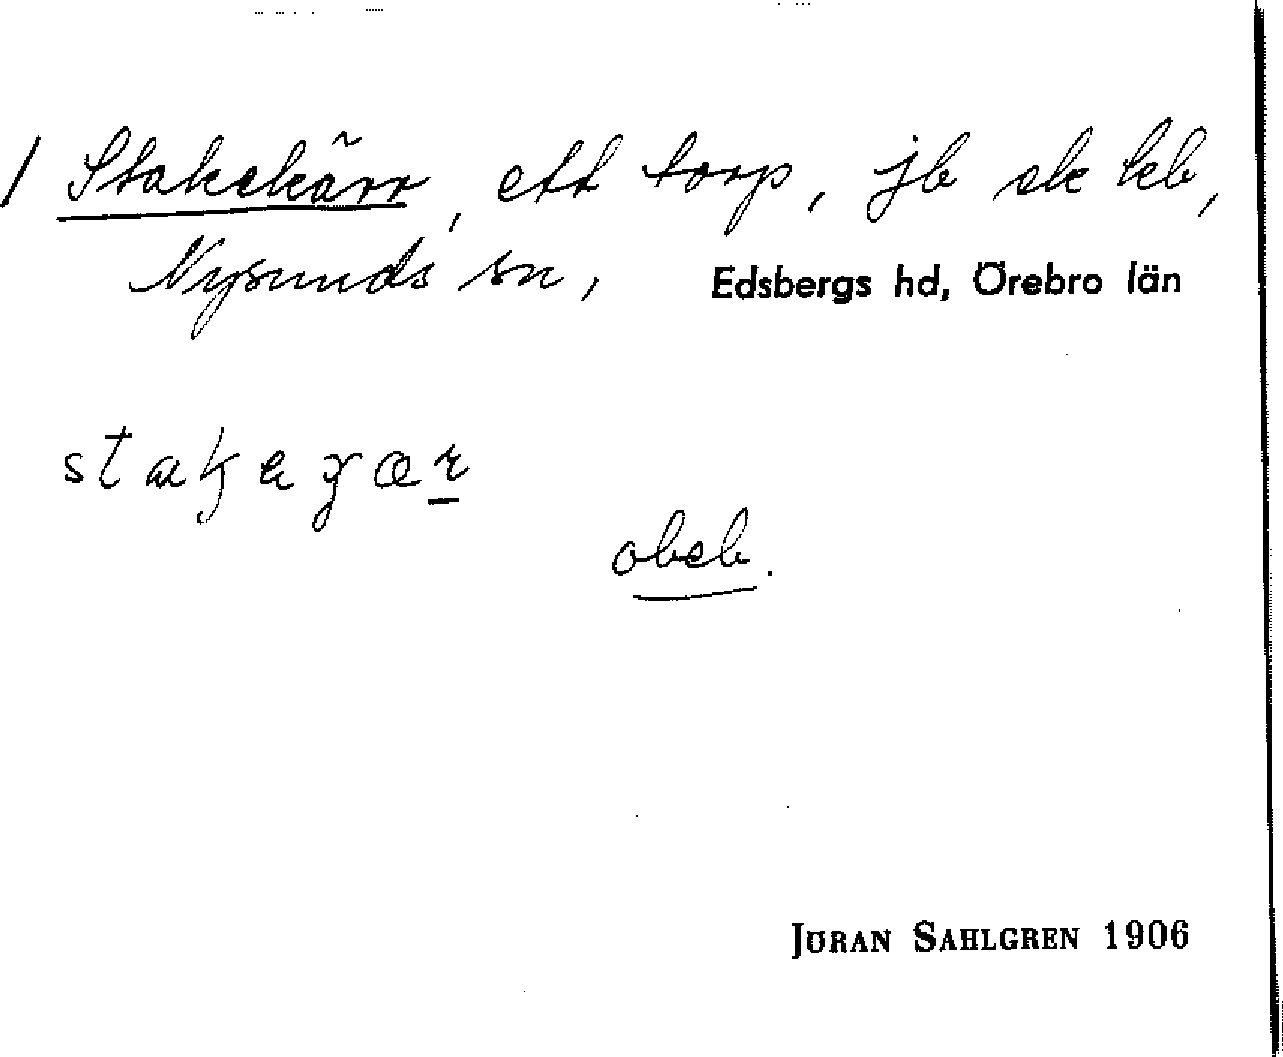 / Stakekärr, ett torp, jb sk kb,
Nysunds sn, Edsbergs hd, Örebro län
obeb.
JÖRAN SAHLGREN 1906